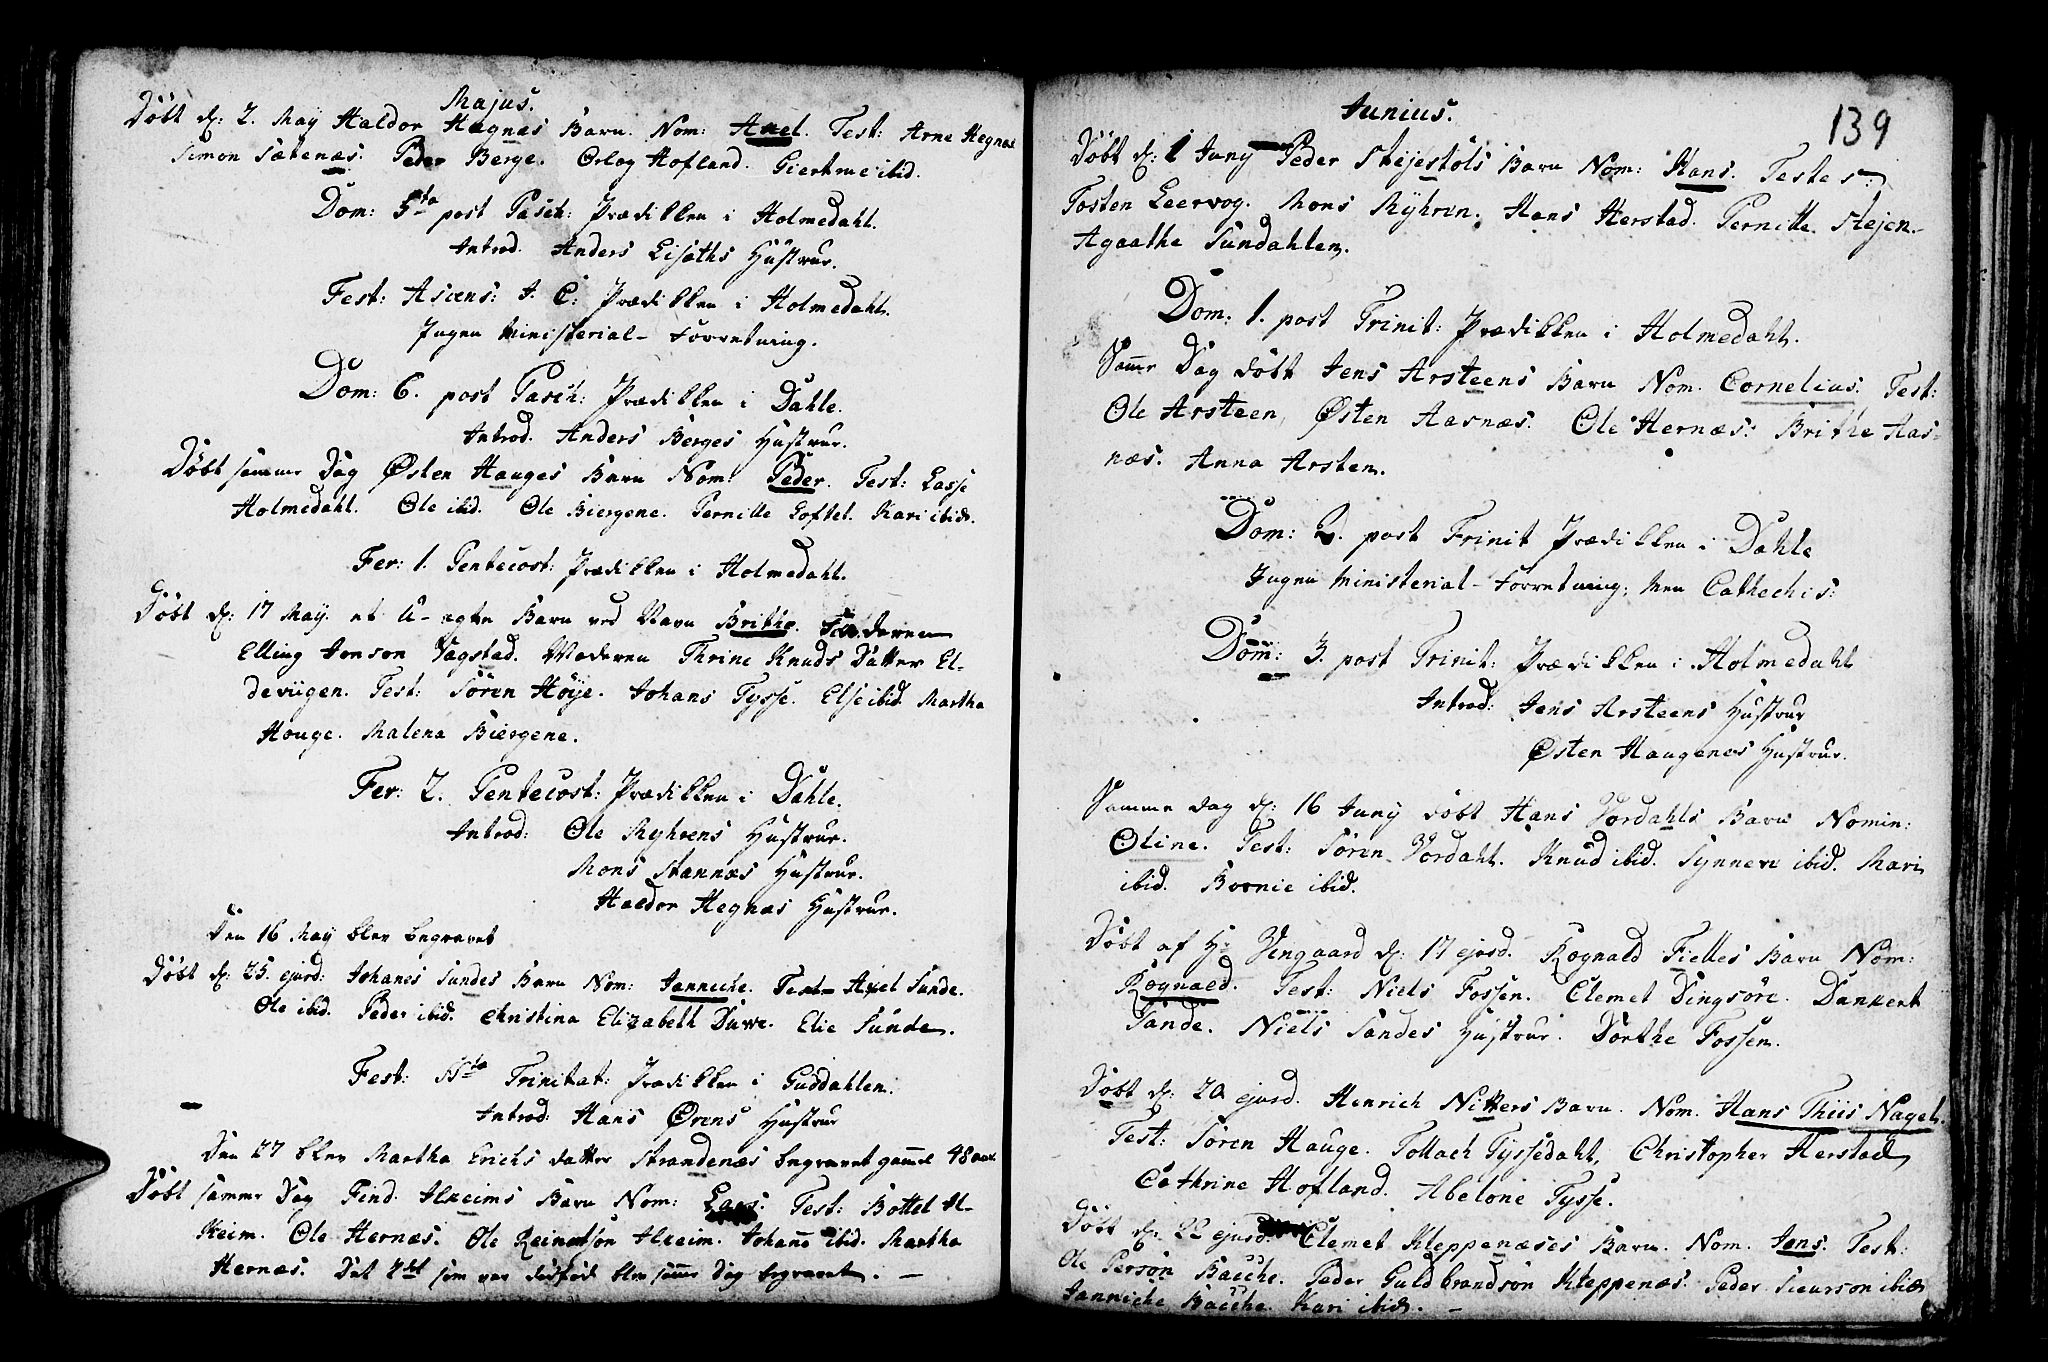 Majus.
Døbt d: 2. May Haldor Hegnæs Barn. Nom: Axel. Test: Arne Hegnæs
Simon Sætenæs. Peder Berge. Orlog Hofland. Giertrue ibid.
Dom: 5ta post Pasch: Prædikken i Holmedahl.
Introd. Anders Lisæths Hustrue.
Fest: Ascens: J. C: Prædikken i Holmedahl.
Ingen Ministerial-Forretning.
Dom: 6. post Pasch: Prædikken i Dahle.
Introd. Anders Berges Hustrue.
Døbt samme Dag Østen Hauges Barn Nom: Peder. Test: Lasse
Holmedahl. Ole ibid. Ole Biergene. Pernille Loftet. Kari ibid.
Fer: 1. Pentecost: Prædikken i Holmedahl.
Døbt d: 17 May. et U-egte Barn ved Navn Brithe. Faderen
Elling Jonson Vagstad. Moderen Thrine Knuds Datter El-
devigen. Test: Sören Høye. Johans Tysse. Else ibid. Martha
Houge. Malena Biergene.
Fer: 2. Pentecost: Prædikken i Dahle.
Introd: Ole Ryhrens Hustrue.
Mons Stannæs Hustrue.
Haldor Hegnæs Hustrue.
Den 16 May blev begravet
Døbt d: 25. ejusd: Johanes Sundes Barn Nom: Janniche. Test Axel Sunde.
Ole ibid. Peder ibid. Christina Elizabeth Duwe. Elie Sunde.
Fest: SSta Trinitat: Prædikken i Guddahlen.
Introd: Hans Ørens Hustrue
Den 27 blev Martha Erichs datter Strandenæs begravet gamel 48 aar
Døbt samme Dag Find Alxeims Barn Nom: Lars. Test: Bottel Al-
Keim. Ole Hernæs. Ole Reinertson Alxeim. Johane ibid. Martha
Hernæs. Det 2det som var dødfød blev samme Dag begravet. —
Junius.
139
Døbt d: 1 Juny Peder Stejestöls Barn Nom: Hans. Testes:
Tosten Leervog. Mons Ryhren. Hans Herstad. Pernille Stejen.
Agaathe Sundahlen.
Dom: 1. post Trinit: Prædikken i Holmedahl.
Same Dag døbt Jens Arsteens Barn Nom. Cornelius. Test:
Ole Arsteen, Østen Aasnæs. Ole Hernæs. Brithe Aas-
næs. Anna Arsten.
Dom: 2. post Trinit Prædikken i Dahle
Ingen Ministerial-Forretning, men Cathechis:
Dom: 3. post Trinit: Prædikken i Holmedahl
Introd: Jens Arsteens Hustrue
Østen Haugenes Hustrue.
Samme dag d: 16 Juny døbt Hans Vordahls Barn Nomin:
Oline. Test: Sören Vordahl. Knud ibid. Synneve ibid. Mari
ibid. Bornie ibid.
Døbt af Hr Vengaard d: 17 ejusd. Rognald Fielles Barn Nom:
Rognald. Test: Niels Fossen. Clemet Dingsöre. Dankert
Sande. Niels Sandes Hustrue. Dorthe Fossen.
Døbt d: 20 ejusd. Henrich Nitters Barn. Nom. Hans Thiis Nagel.
Test: Sören Hauge. Tollach Tyssedahl, Christopher Herstad
Cathrine Hofland. Abelone Tysse.
Døbt d: 22 ejusd. Clemet Kleppenæses Barn. Nom. Jens. Test:
Ole Persön Bacche. Peder Guldbrandsön Kleppenæs. Peder Sieurson ibid
Janniche Bacche. Kari ibid. —